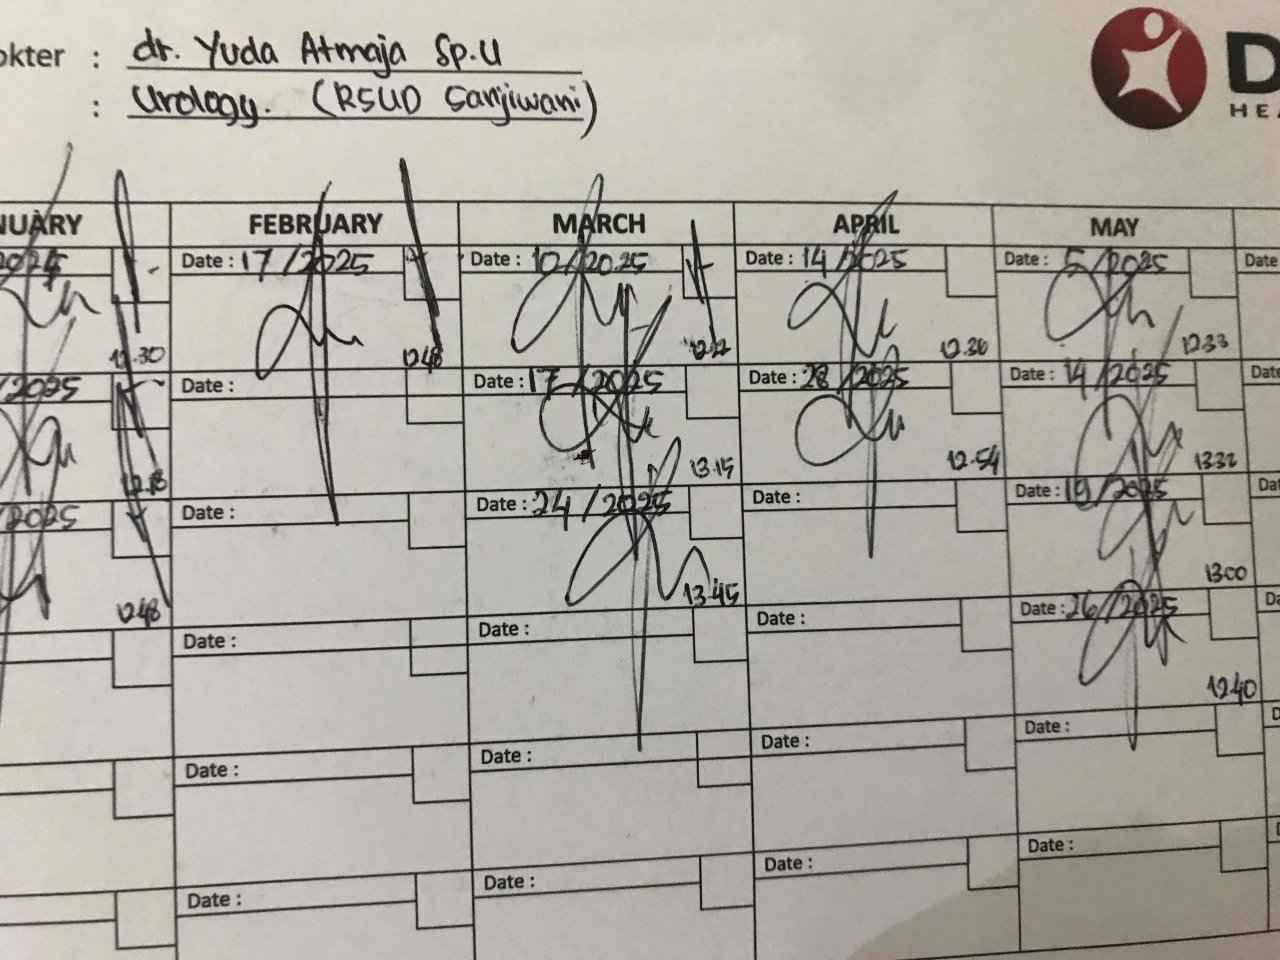 okter : dr. Yuda Atmaja Sp.U
: Urology. (RSUD Sanjiwani)
D
HEA
NUARY FEBRUARY MARCH APRIL MAY
Date : 17/2025 Date : 10/2025 Date : 14/2025 Date : 5/2025 Date
12.30 12.48 12.12 12.36 12.33
/2025 Date : Date : 17/2025 Date : 28/2025 Date : 14/2025 Date
13.15 12.54 13.32
/2025 Date : Date : 24/2025 Date : Date : 19/2025 Dat
12.48 13.45 13.00
Date : Date : Date : Date : 26/2025 Da
12.40
Date : Date : Date : Date : D
Date : Date : Date : Date :